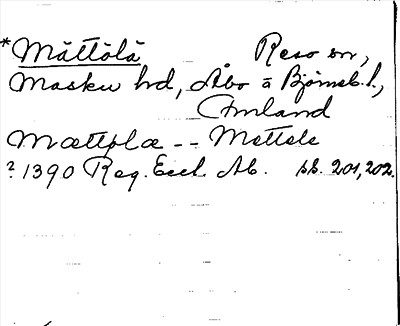 *Mättölä Reso sn,
Masku hd, Åbo ä Björneb. l.,
Finland
Mættplæ -- Mettele
? 1390 Reg. Eccl. Ab. ss. 201, 202.